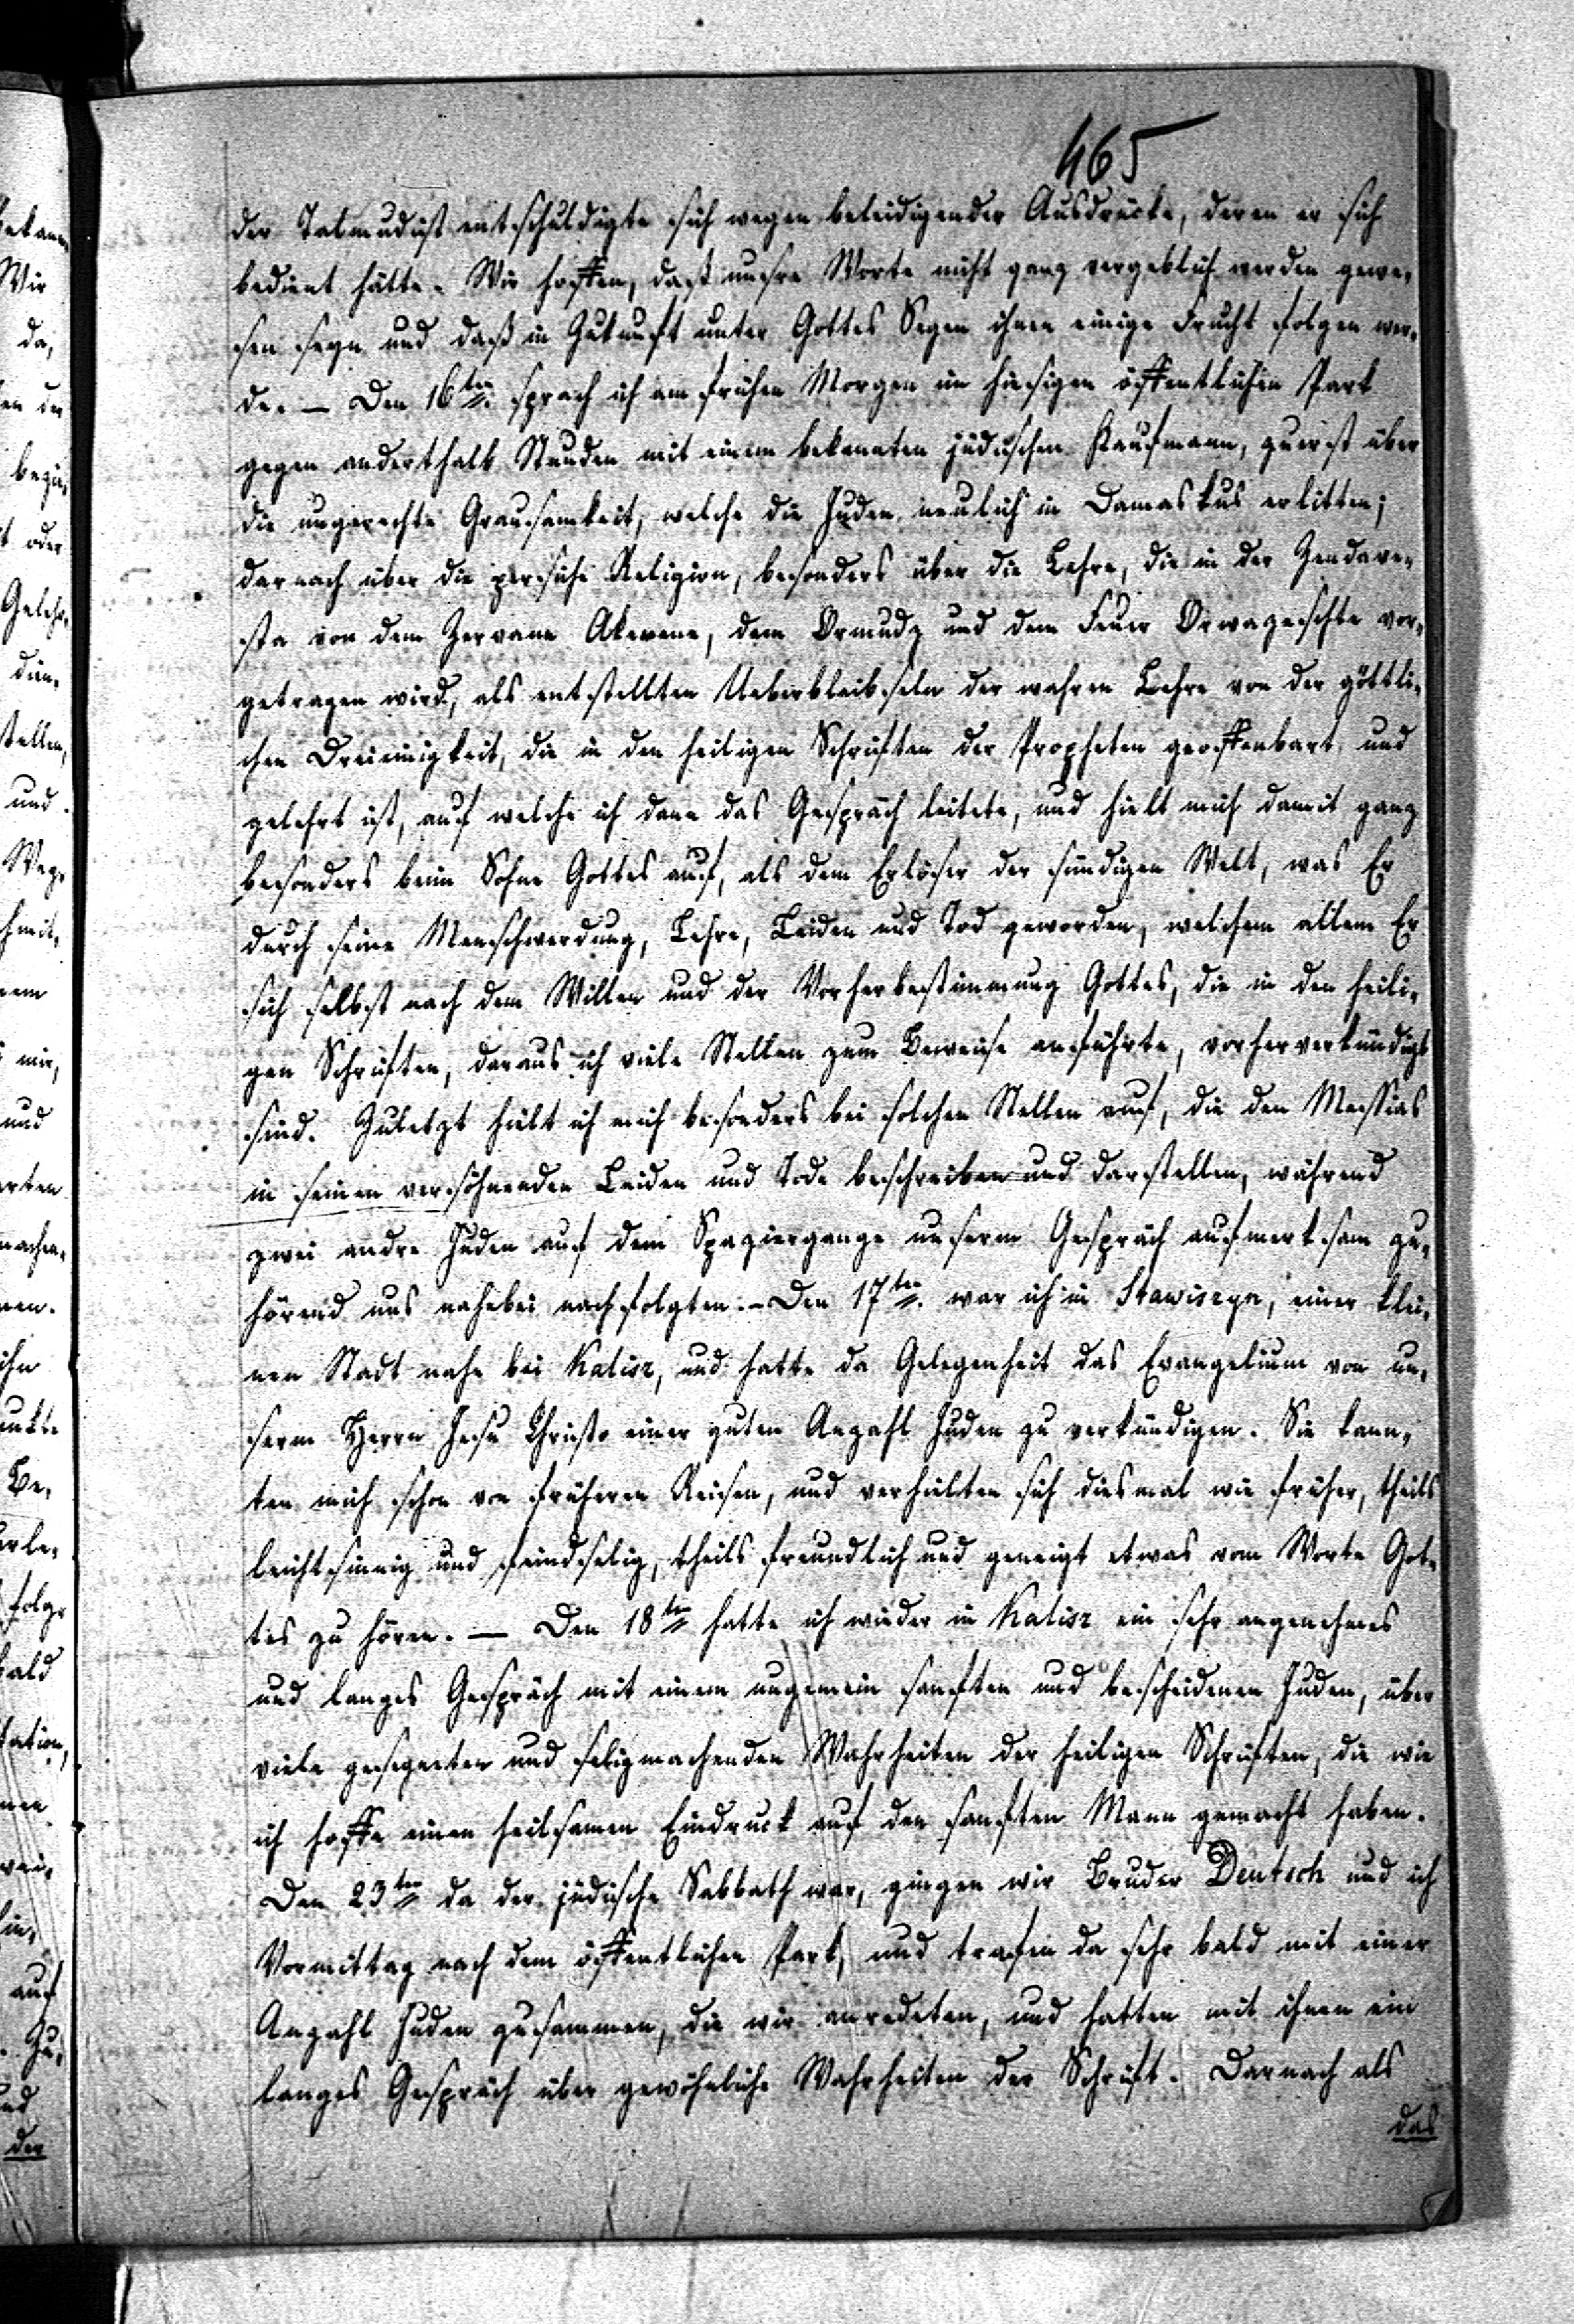 465
der Talmudist entschuldigte sich wegen beleidigender Ausdrücke, deren er sich
bedient hätte. Wir hoffen, daß unsre Worte nicht ganz vergeblich werden gewe-
sen seyn und daß in Zukunft unter Gottes Segen ihnen einige Frucht folgen wer-
de. — Den 16ten. sprach ich am frühen Morgen im hiesigen öffentlichen Park
gegen anderthalb Stunden mit einem bekannten jüdischen Kaufmann, zuerst über
die ungerechte Grausamkeit, welche die Juden neulich in Damaskus erlitten;
darnach über die persische Religion, besonders über die Lehre, die in der Zendave-
sta von dem Zervane Akerene, dem Ormudz und dem Feuer Orwazeschte vor-
getragen wird, als entstellten Ueberbleibseln der wahren Lehre von der göttli-
chen Dreieinigkeit, die in den heiligen Schriften der Propheten geoffenbart und
gelehrt ist, auf welche ich dann das Gespräch leitete, und hielt mich damit ganz
besonders beim Sohne Gottes auf, als dem Erlöser der sündigen Welt, was Er
durch seine Menschwerdung, Lehre, Leiden und Tod geworden, welchem allem Er
sich selbst nach dem Willen und der Vorherbestimmung Gottes, die in den heili-
gen Schriften, daraus ich viele Stellen zum Beweise anführte, vorherverkündigt
sind. Zuletzt hielt ich mich besonders bei solchen Stellen auf, die den Messias
in seinen versöhnenden Leiden und Tode beschreiben und darstellen, während
zwei andre Juden auf dem Spaziergange unserm Gespräch aufmerksam zu-
hörend uns nahebei nachfolgten. – Den 17ten. war ich in Stawiszyn, einer klei-
nen Stadt nahe bei Kalisz, und hatte da Gelegenheit das Evangelium von un-
serm Herrn Jesu Christo einer guten Anzahl Juden zu verkündigen. Sie kann-
ten mich schon von früheren Reisen, und verhielten sich diesmal wie früher, theils
leichtsinnig und feindselig, theils freundlich und geneigt etwas vom Worte Got-
tes zu hören. — Den 18ten hatte ich wieder in Kalisz ein sehr angenehmes
und langes Gespräch mit einem ungemein sanften und bescheidenen Juden, über
viele gesegneten und seligmachenden Wahrheiten der heiligen Schriften, die wie
ich hoffe einen heilsamen Eindruck auf den sanften Mann gemacht haben.
Den 23ten da der jüdische Sabbath war, gingen wir Bruder Deutsch und ich
Vormittag nach dem öffentlichen Park, und trafen da sehr bald mit einer
Anzahl Juden zusammen, die wir anredeten, und hatten mit ihnen ein
langes Gespräch über gewöhnliche Wahrheiten der Schrift. Darnach als
das